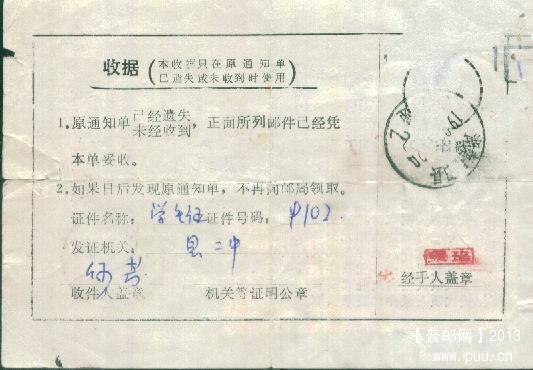 收据(本收据只在原通知单
已遗失或未收到时使用)
1.原通知单已经遗失
未经收到,正面所列邮件已经凭
本单妥收。
2.如果日后发现原通知单,不再向邮局领取。
证件名称:学生证 证件号码:
发证机关:县二中
收件人盖章 机关等证明公章 经手人盖章
【普邮网】2013
www.puu.cn